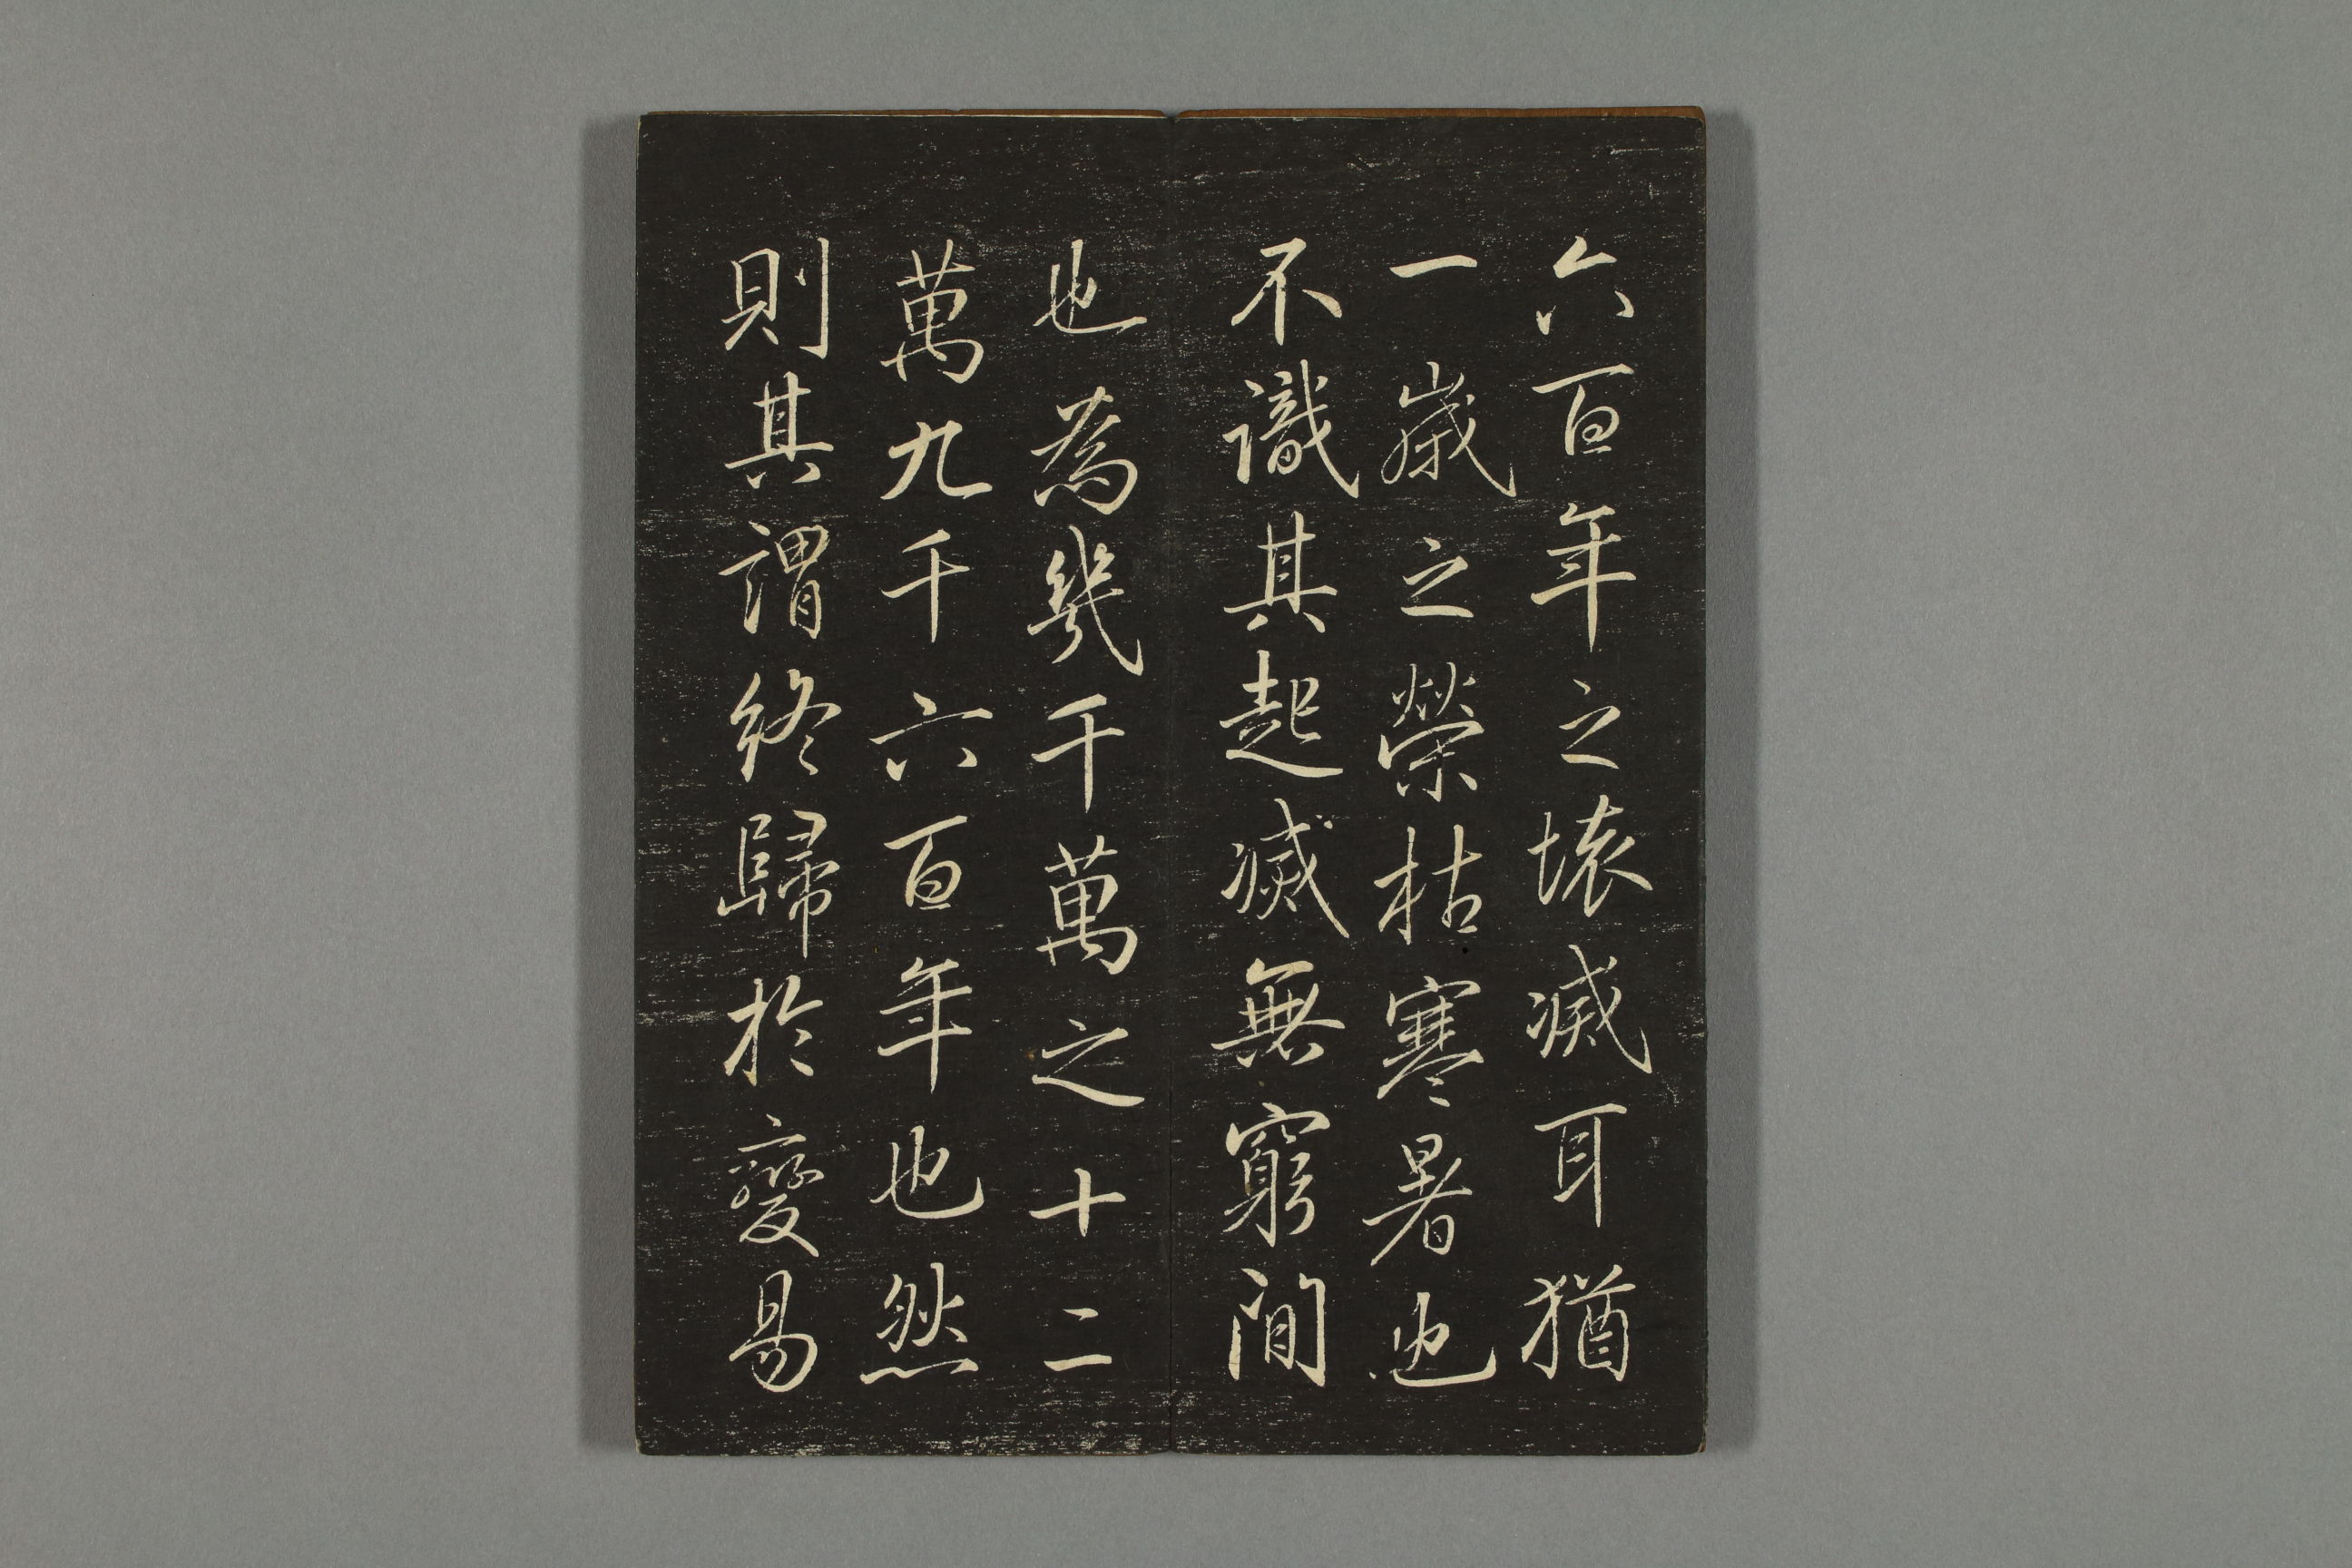 六百年之壞滅耳猶
一歲之榮枯寒暑也
不識其起滅無窮間
也為幾千萬之十二
萬九千六百年也然
則其謂終歸於變易